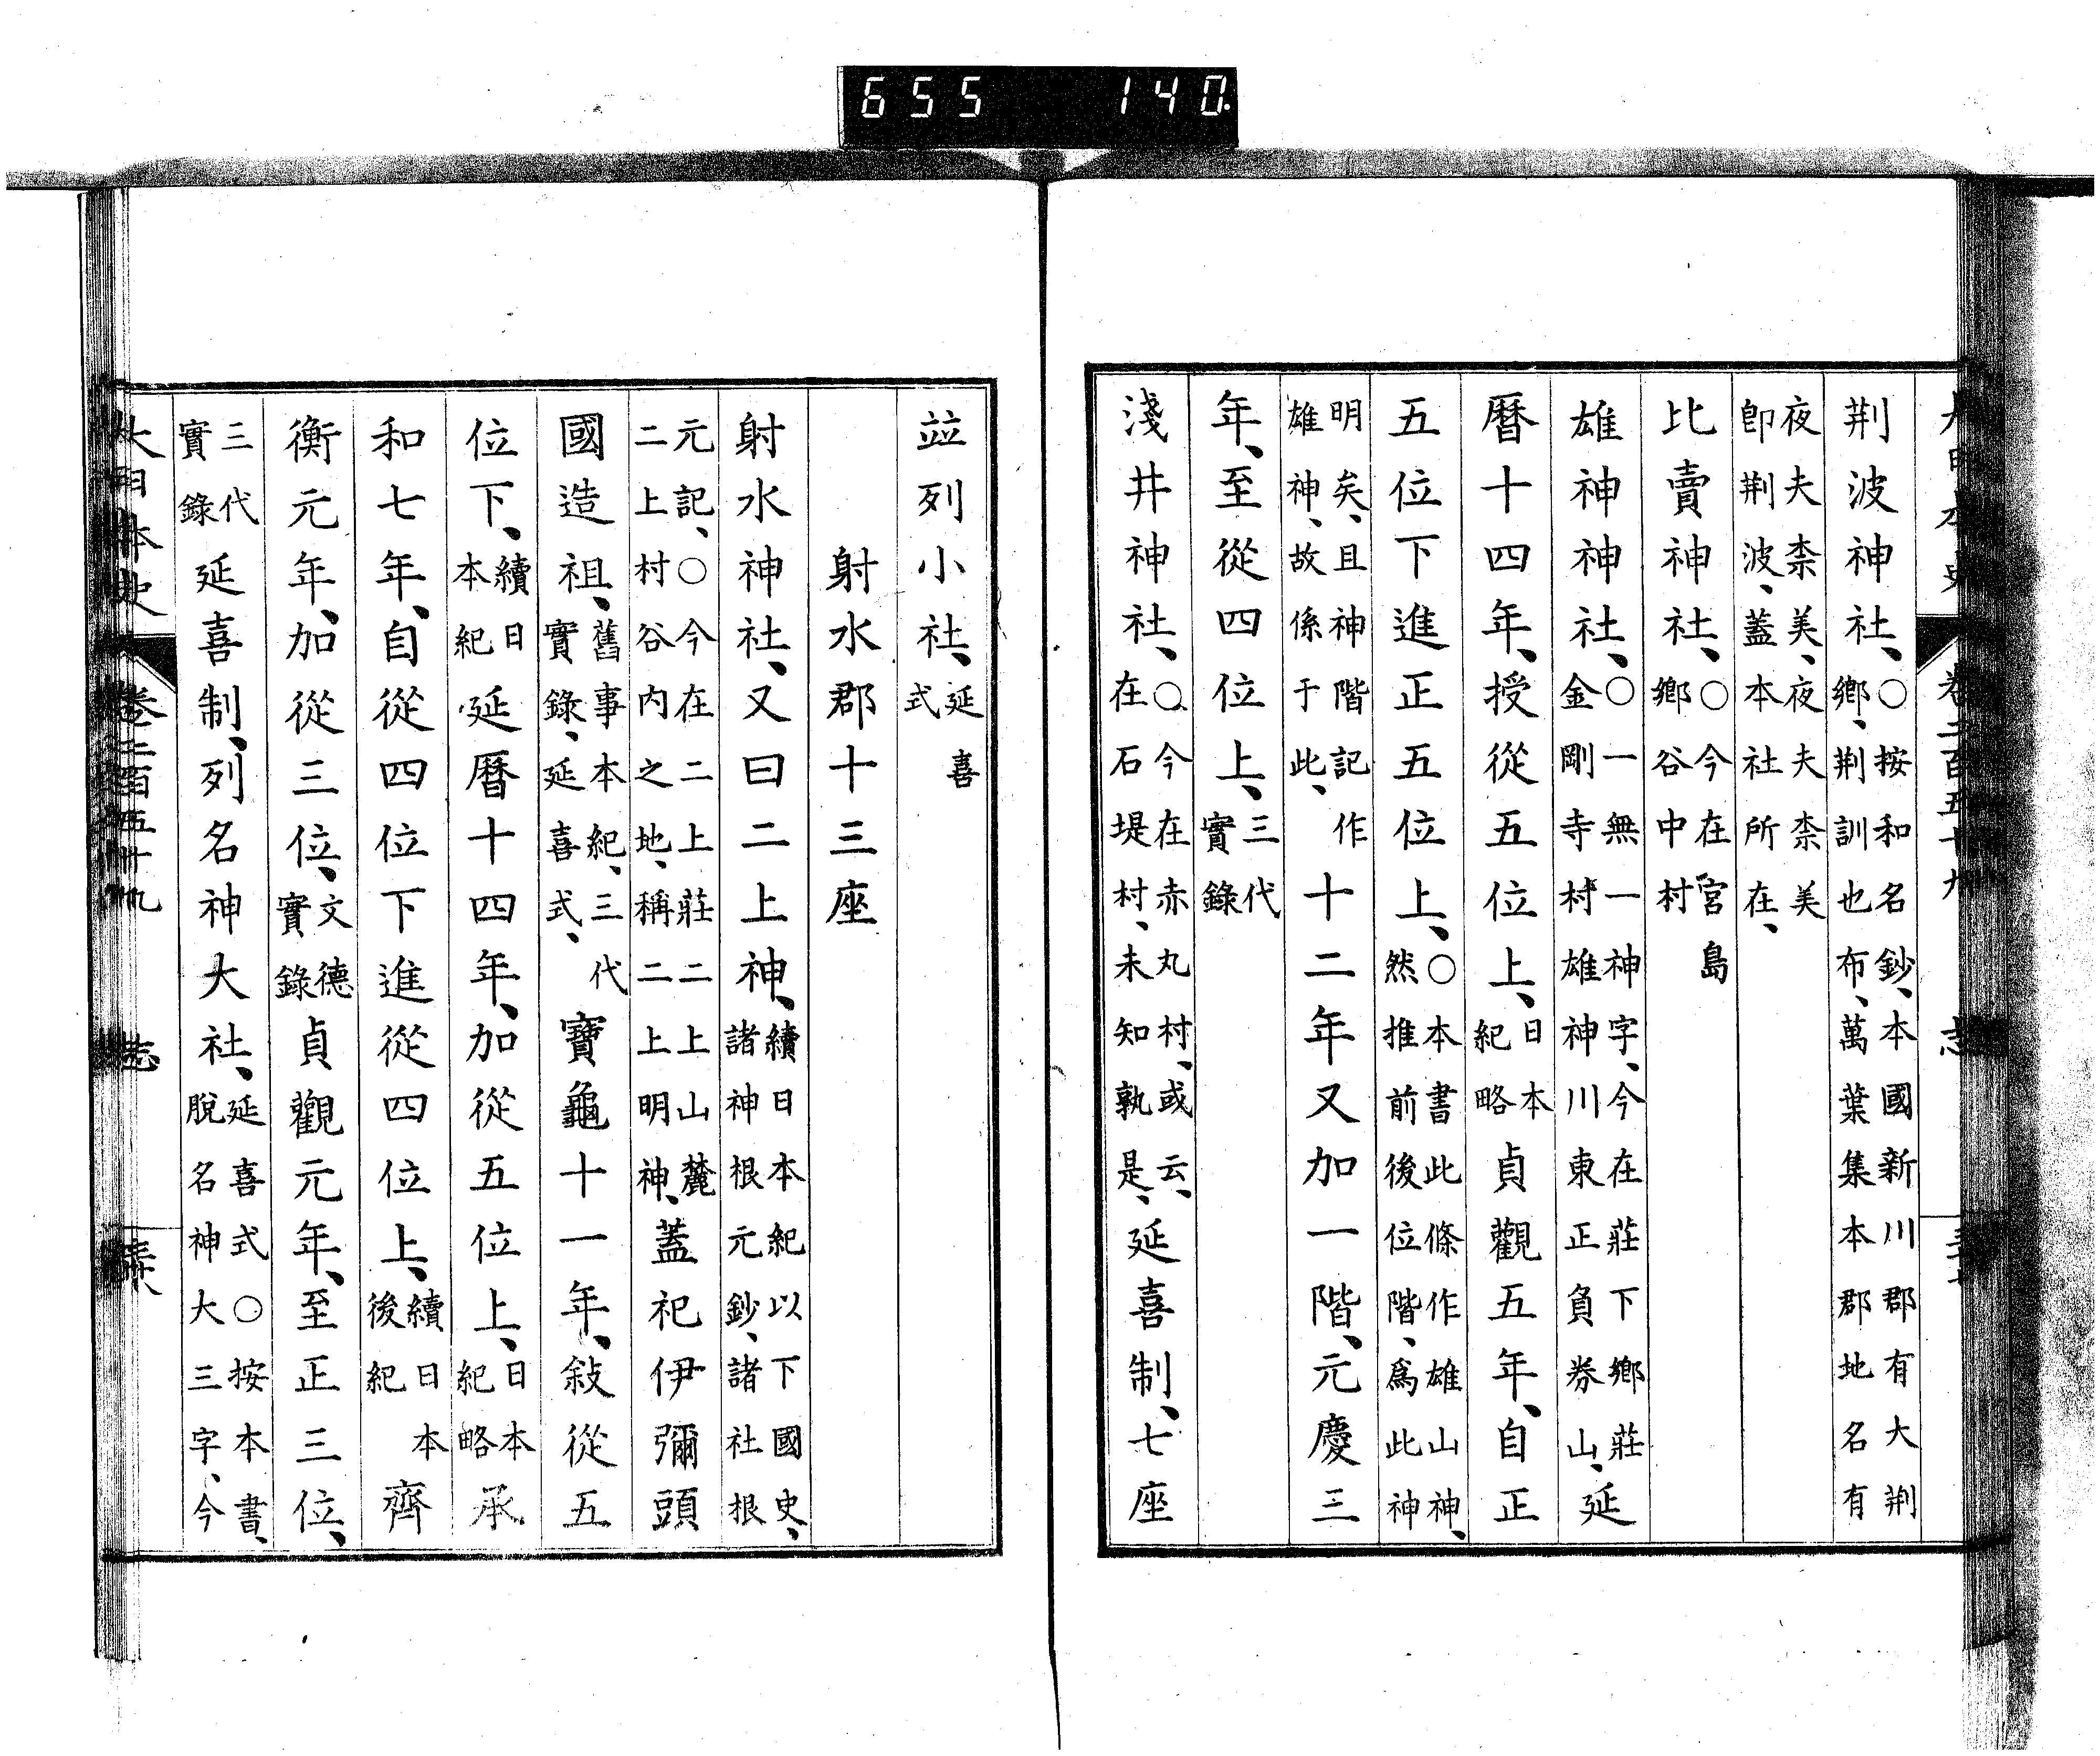 655 140
大日本史 卷二百五十九 志 三十七
荆波神社、○按和名鈔、本國新川郡有大荆鄉、荆訓也布、萬葉集本郡地名有
夜夫柰美、夜夫柰美即荆波、蓋本社所在、
比賣神社、○今在宮島鄉谷中村
雄神神社、○一無一神字、今在莊下鄉莊金剛寺村雄神川東正負劵山、延
曆十四年、授從五位上、日本紀略貞觀五年、自正
五位下進正五位上、○本書此條作雄山神、然推前後位階、爲此神
明矣、且神階記作雄神、故係于此、十二年又加一階、元慶三
年、至從四位上、三代實錄
淺井神社、○今在赤丸村、或云、在石堤村、未知孰是、延喜制、七座
竝列小社、延喜式
射水郡十三座
射水神社、又曰二上神、續日本紀以下國史、諸神根元鈔、諸社根
元記、○今在二上莊二上山麓二上村谷内之地、稱二上明神、蓋祀伊彌頭
國造祖、舊事本紀、三代實錄、延喜式、寶龜十一年、敍從五
位下、續日本紀延曆十四年、加從五位上、日本紀略承
和七年、自從四位下進從四位上、續日本後紀齊
衡元年、加從三位、文德實錄貞觀元年、至正三位、
三代實錄延喜制、列名神大社、延喜式○按本書、脫名神大三字、今
大日本史 卷二百五十九 志 三十八